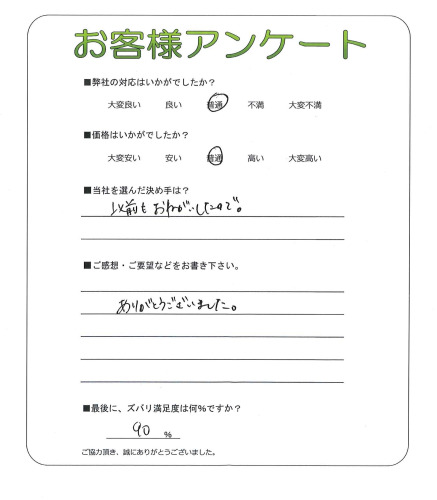 お客様アンケート
■弊社の対応はいかがでしたか？
大変良い 良い 普通 不満 大変不満
■価格はいかがでしたか？
大変安い 安い 普通 高い 大変高い
■当社を選んだ決め手は？
以前もおねがいしたので。
■ご感想・ご要望などをお書き下さい。
ありがとうございました。
■最後に、ズバリ満足度は何％ですか？
90 ％
ご協力頂き、誠にありがとうございました。